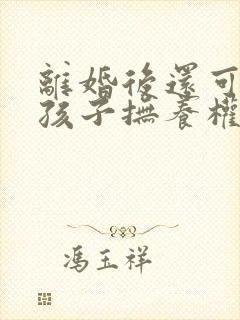 離婚後還可
孩子撫養權
馮玉祥